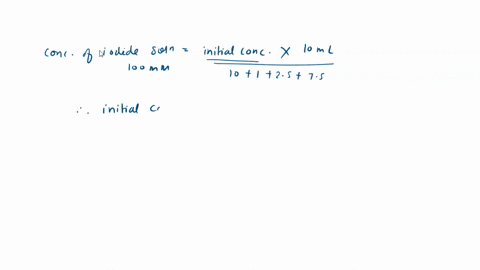 conc. of iodide soln = initial conc. × 10 mL
100 mM 10 + 1 + 2.5 + 7.5
∴ initial c